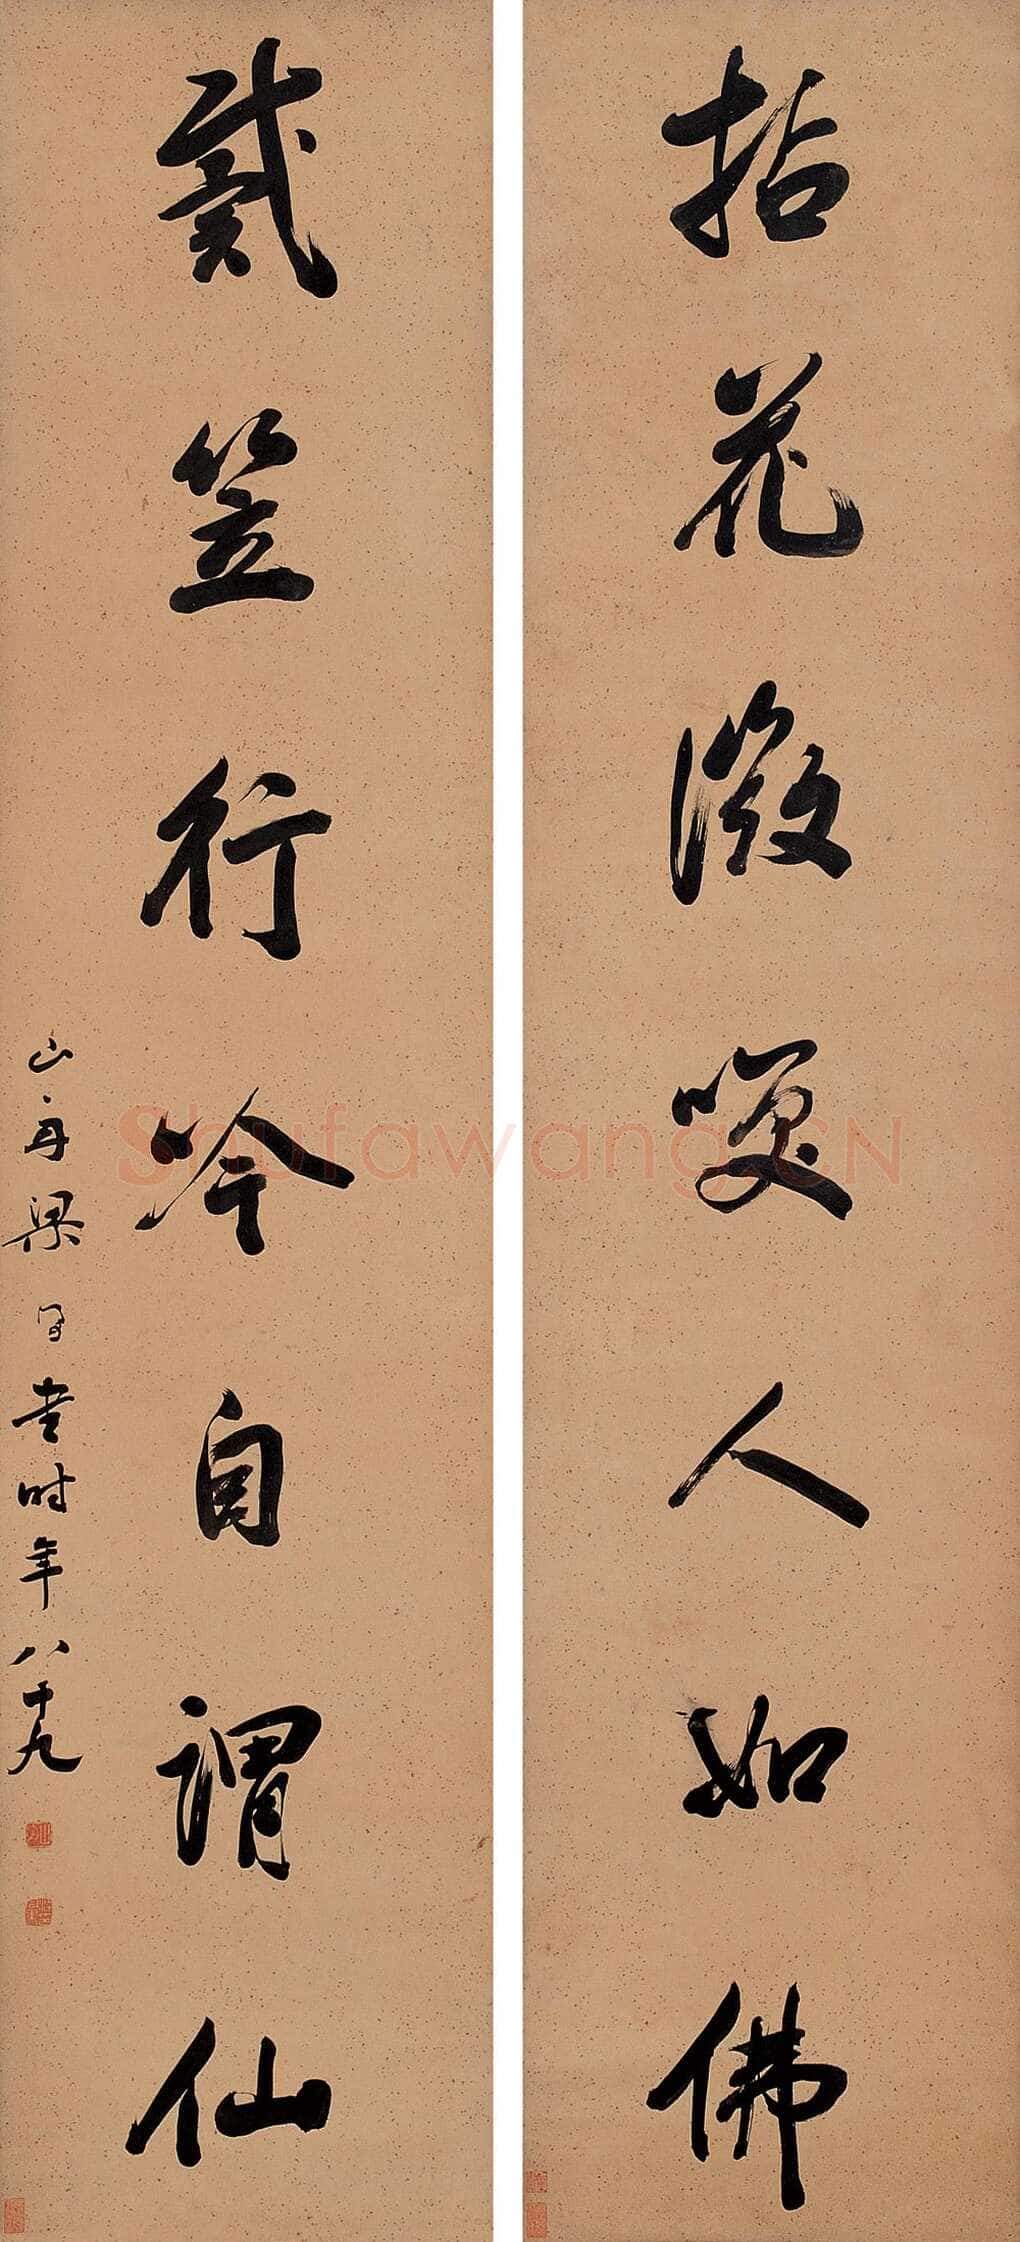 拈花微笑人如佛
戴笠行吟自謂仙
山舟梁同書時年八十九
Shufawang.CN